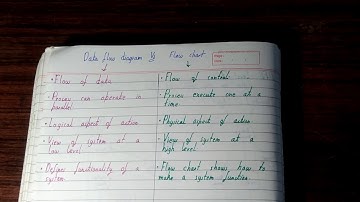 Data flow diagram Vs Flow chart
• Flow of data
• Flow of control
• Process can operate in parallel
• Process execute one at a time
• Logical aspect of action
• Physical aspect of action
• View of system at a low level
• View of system at a high level
• Defines functionality of a system
• Flow chart shows how to make a system function.